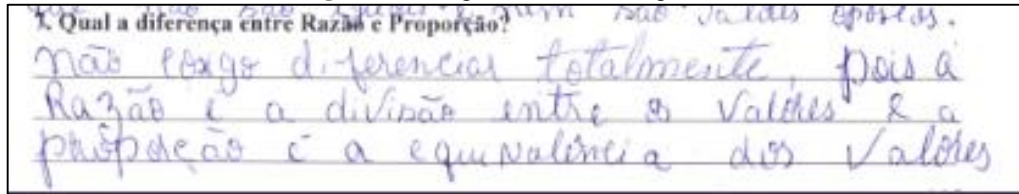 não são iguais e nem são valores opostos.
1. Qual a diferença entre Razão e Proporção?
não consgo diferenciar totalmente, pois a
Razão é a divisão entre os Valores e a
proporção é a equivalência dos Valores